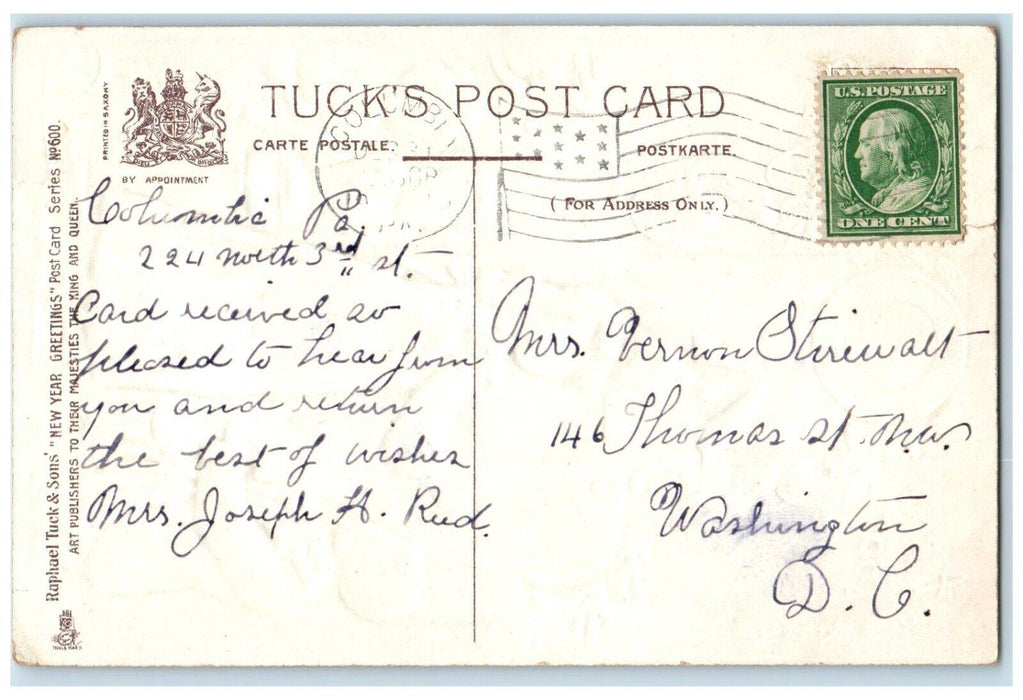 TUCK'S POST CARD
CARTE POSTALE.
POSTKARTE.
( FOR ADDRESS ONLY. )
PRINTED IN SAXONY
BY APPOINTMENT
Raphael Tuck & Sons' "NEW YEAR GREETINGS" Post Card Series Nº 600.
ART PUBLISHERS TO THEIR MAJESTIES THE KING AND QUEEN.
TRADE MARK
U.S. POSTAGE
ONE CENT
COLUMBIA
Columbia Pa.
224 north 3rd st.
Card received so
pleased to hear from
you and return
the best of wishes
Mrs. Joseph H. Rud.
Mrs. Vernon Stirewalt
146 Thomas st. n.w.
Washington
D. C.